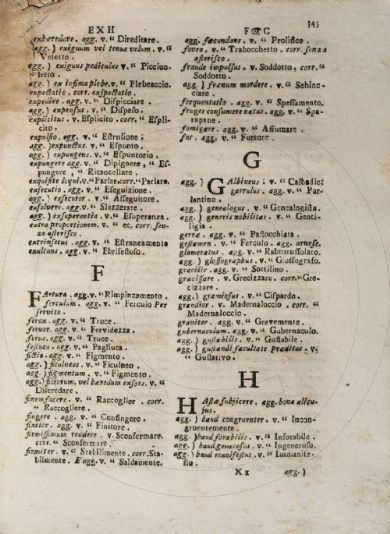 EXH
exhæredare. agg. v. “ Diredïtare.
agg. ) exiguum vel tenue velum. v. “
Veletto.
agg. ) exiguus pediculus v. “ Picciuo-
letto.
agg. ) ex infima plebe. v. “ Plebeaccio.
expectatio. corr. exspectatio.
expedire. agg. v. “ Dispicciare.
expensus. agg. v. “ Dispeso.
explicitus. v. “ Esplicito. corr. “ Espli-
cito.
expulsio. agg. v. “ Estrusione;
agg. ) expunctus. v. “ Espunto.
agg. ) expungens. v. “ Espuntorio.
expungere agg. v. “ Dipignere, “ Es-
pungere, “ Ricancellare.
exequutio. agg. v. “ Eseguizione.
agg. ) executor. v. “ Asseguitore.
exsolvere. agg. v. “ Slazzerare.
agg. ) exsuperantia v. “ Esuperanza.
extra proportionem. v. “ ec. corr. sen-
za asterisco.
extrinsecus agg. v. “ Estrancamento
exultans agg. v. “ Ebrifestoso.
F
FArtura. agg. v. “ Rimpinzamento.
ferculum. agg. v. “ Ferculo Per
servito.
ferox. agg. v. “ Truce.
fervor. agg. v. “ Fervidezza.
ferus. agg. v. “ Truce.
festuca. agg. v. “ Pagliuca.
fictio. agg. v. “ Figmento.
agg. ) ficulneus v. “ Ficulneo.
agg. ) figmentum v. “ Figmento.
Diseredare.
finemfacere. v. “ Raccoglier. corr.
“ Raccogliere.
fingere. agg. v. “ Confingere.
finitor. agg. v. “ Finitore.
firmissimum reddere. v. “ Sconfermare.
corr. “ Sconfermare.
firmiter. v. “ Stabilmente. corr. Sta-
bilmente. E agg. v. “ Saldamente.
FŒC
345
agg. fœcundus. v. “ Prolifico.
fovea. v. “ Trabocchetto. corr. senza
asterisco.
fraude impulsus v. “ Soddotto, corr. “
Soddotto.
agg. ) frænum mordere. v. “ Schino-
ciare.
frequentatio. agg. v. “ Spessamento.
fruges consumere natus. agg. v. “ Spa-
rapane.
fumigare. agg. v. “ Affumare.
fur. agg. v. “ Furtore.
G
agg. ) GAlbineus: v. “ Calbadiof
garrulus. agg. v. “ Par-
lantino.
agg. ) genealogus. v. “ Genealogista.
agg. ) generis nobilitas. v. “ Genti-
ligia.
gerræ. agg. v. “ Pastocchiata.
gestamen. v. “ Ferculo. agg. arnese.
glomeratus agg. v. “ Rabbaruffolato.
agg. ) glossographus v. “ Glossografo.
gracilis. agg. v. “ Sottilino.
græcissare. v. “ Grecizzare. corr. “ Gre-
cizzare.
agg. ) gramiosus v. “ Cispardo.
grandior. v. “ Madernaloccio. corr. “
Madornaloccio.
graviter. agg. v. “ Grevemente.
gubernaculum. agg. v. “ Gubernaculo.
agg. ) gustabilis. v. “ Gustabile.
agg. ) gustandi facultate præditus. v.
“ Gustativo.
H
HAstæ subjicere. agg. bona alicu-
jus.
agg. ) haud congruenter. v. “ Incon-
gruentemente.
agg. ) haud forabilis. v. “ Inforabile.
agg. ) haud generosus. v. “ Ingeneroso.
agg. ) haud manifestus. v. “ Immanife-
sto.
Xx
agg. )